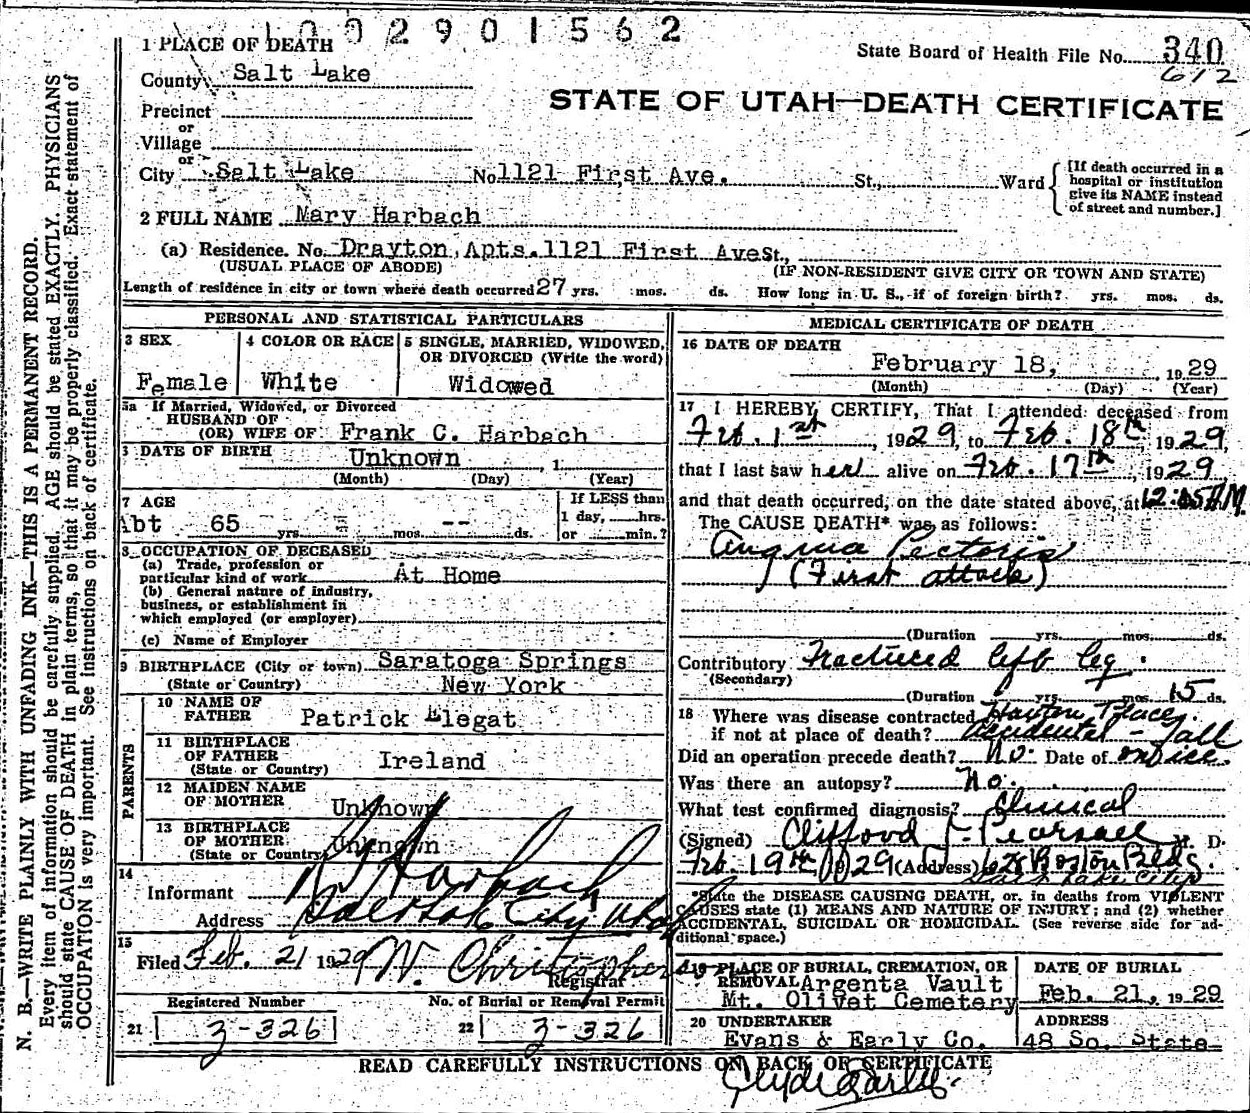 1002901562
1 PLACE OF DEATH
State Board of Health File No. 340
612
County Salt Lake
STATE OF UTAH—DEATH CERTIFICATE
Precinct
or
Village
or
City Salt Lake No. 1121 First Ave. St., Ward
[If death occurred in a hospital or institution give its NAME instead of street and number.]
2 FULL NAME Mary Harbach
(a) Residence. No. Drayton Apts. 1121 First Ave St.,
(USUAL PLACE OF ABODE) (IF NON-RESIDENT GIVE CITY OR TOWN AND STATE)
Length of residence in city or town where death occurred 27 yrs. mos. ds. How long in U. S., if of foreign birth? yrs. mos. ds.
PERSONAL AND STATISTICAL PARTICULARS
3 SEX
Female
4 COLOR OR RACE
White
5 SINGLE, MARRIED, WIDOWED,
OR DIVORCED (Write the word)
Widowed
5a If Married, Widowed, or Divorced
HUSBAND OF
(OR) WIFE OF Frank C. Harbach
DATE OF BIRTH Unknown , 1
(Month) (Day) (Year)
7 AGE
Abt 65 yrs. mos. -- ds.
If LESS than
1 day, hrs.
or min.?
8 OCCUPATION OF DECEASED
(a) Trade, profession or
particular kind of work At Home
(b) General nature of industry,
business, or establishment in
which employed (or employer)
(c) Name of Employer
9 BIRTHPLACE (City or town) Saratoga Springs
(State or Country) New York
PARENTS
10 NAME OF
FATHER Patrick Elegat
11 BIRTHPLACE
OF FATHER
(State or Country) Ireland
12 MAIDEN NAME
OF MOTHER Unknown
13 BIRTHPLACE
OF MOTHER
(State or Country) Unknown
14
Informant Harbach
Address Salt Lak City Utah
15
Filed Feb. 21 1929 W. Christopherson
Registrar
Registered Number
21 3-326
No. of Burial or Removal Permit
22 3-326
MEDICAL CERTIFICATE OF DEATH
16 DATE OF DEATH
February 18, 1929
(Month) (Day) (Year)
17 I HEREBY CERTIFY, That I attended deceased from
Feb. 1st, 1929, to Feb. 18th 1929,
that I last saw her alive on Feb. 17th, 1929
and that death occurred, on the date stated above, at 12:05 A.M.
The CAUSE DEATH* was as follows:
Angina Pectoris
(First attack)
(Duration yrs. mos. ds.
Contributory Fractured left leg.
(Secondary)
(Duration yrs. mos. 15 ds.
18 Where was disease contracted
if not at place of death? Accidental - fall
Did an operation precede death? No. Date of on ice.
Was there an autopsy? No.
What test confirmed diagnosis? Clinical
(Signed) Clifford J. Pearsall M. D.
Feb. 19th 1929 (Address) 628 Boston Bldg.
Salt Lake City
*State the DISEASE CAUSING DEATH, or, in deaths from VIOLENT
CAUSES state (1) MEANS AND NATURE OF INJURY; and (2) whether
ACCIDENTAL, SUICIDAL OR HOMICIDAL. (See reverse side for ad-
ditional space.)
19 PLACE OF BURIAL, CREMATION, OR
REMOVAL Argenta Vault
Mt. Olivet Cemetery
DATE OF BURIAL
Feb. 21, 1929
20 UNDERTAKER
Evans & Early Co.
ADDRESS
48 So. State
READ CAREFULLY INSTRUCTIONS ON BACK OF CERTIFICATE
Clyde Earley
N. B.—WRITE PLAINLY WITH UNFADING INK—THIS IS A PERMANENT RECORD.
Every item of information should be carefully supplied. AGE should be stated EXACTLY. PHYSICIANS
should state CAUSE OF DEATH in plain terms, so that it may be properly classified. Exact statement of
OCCUPATION is very important. See instructions on back of certificate.